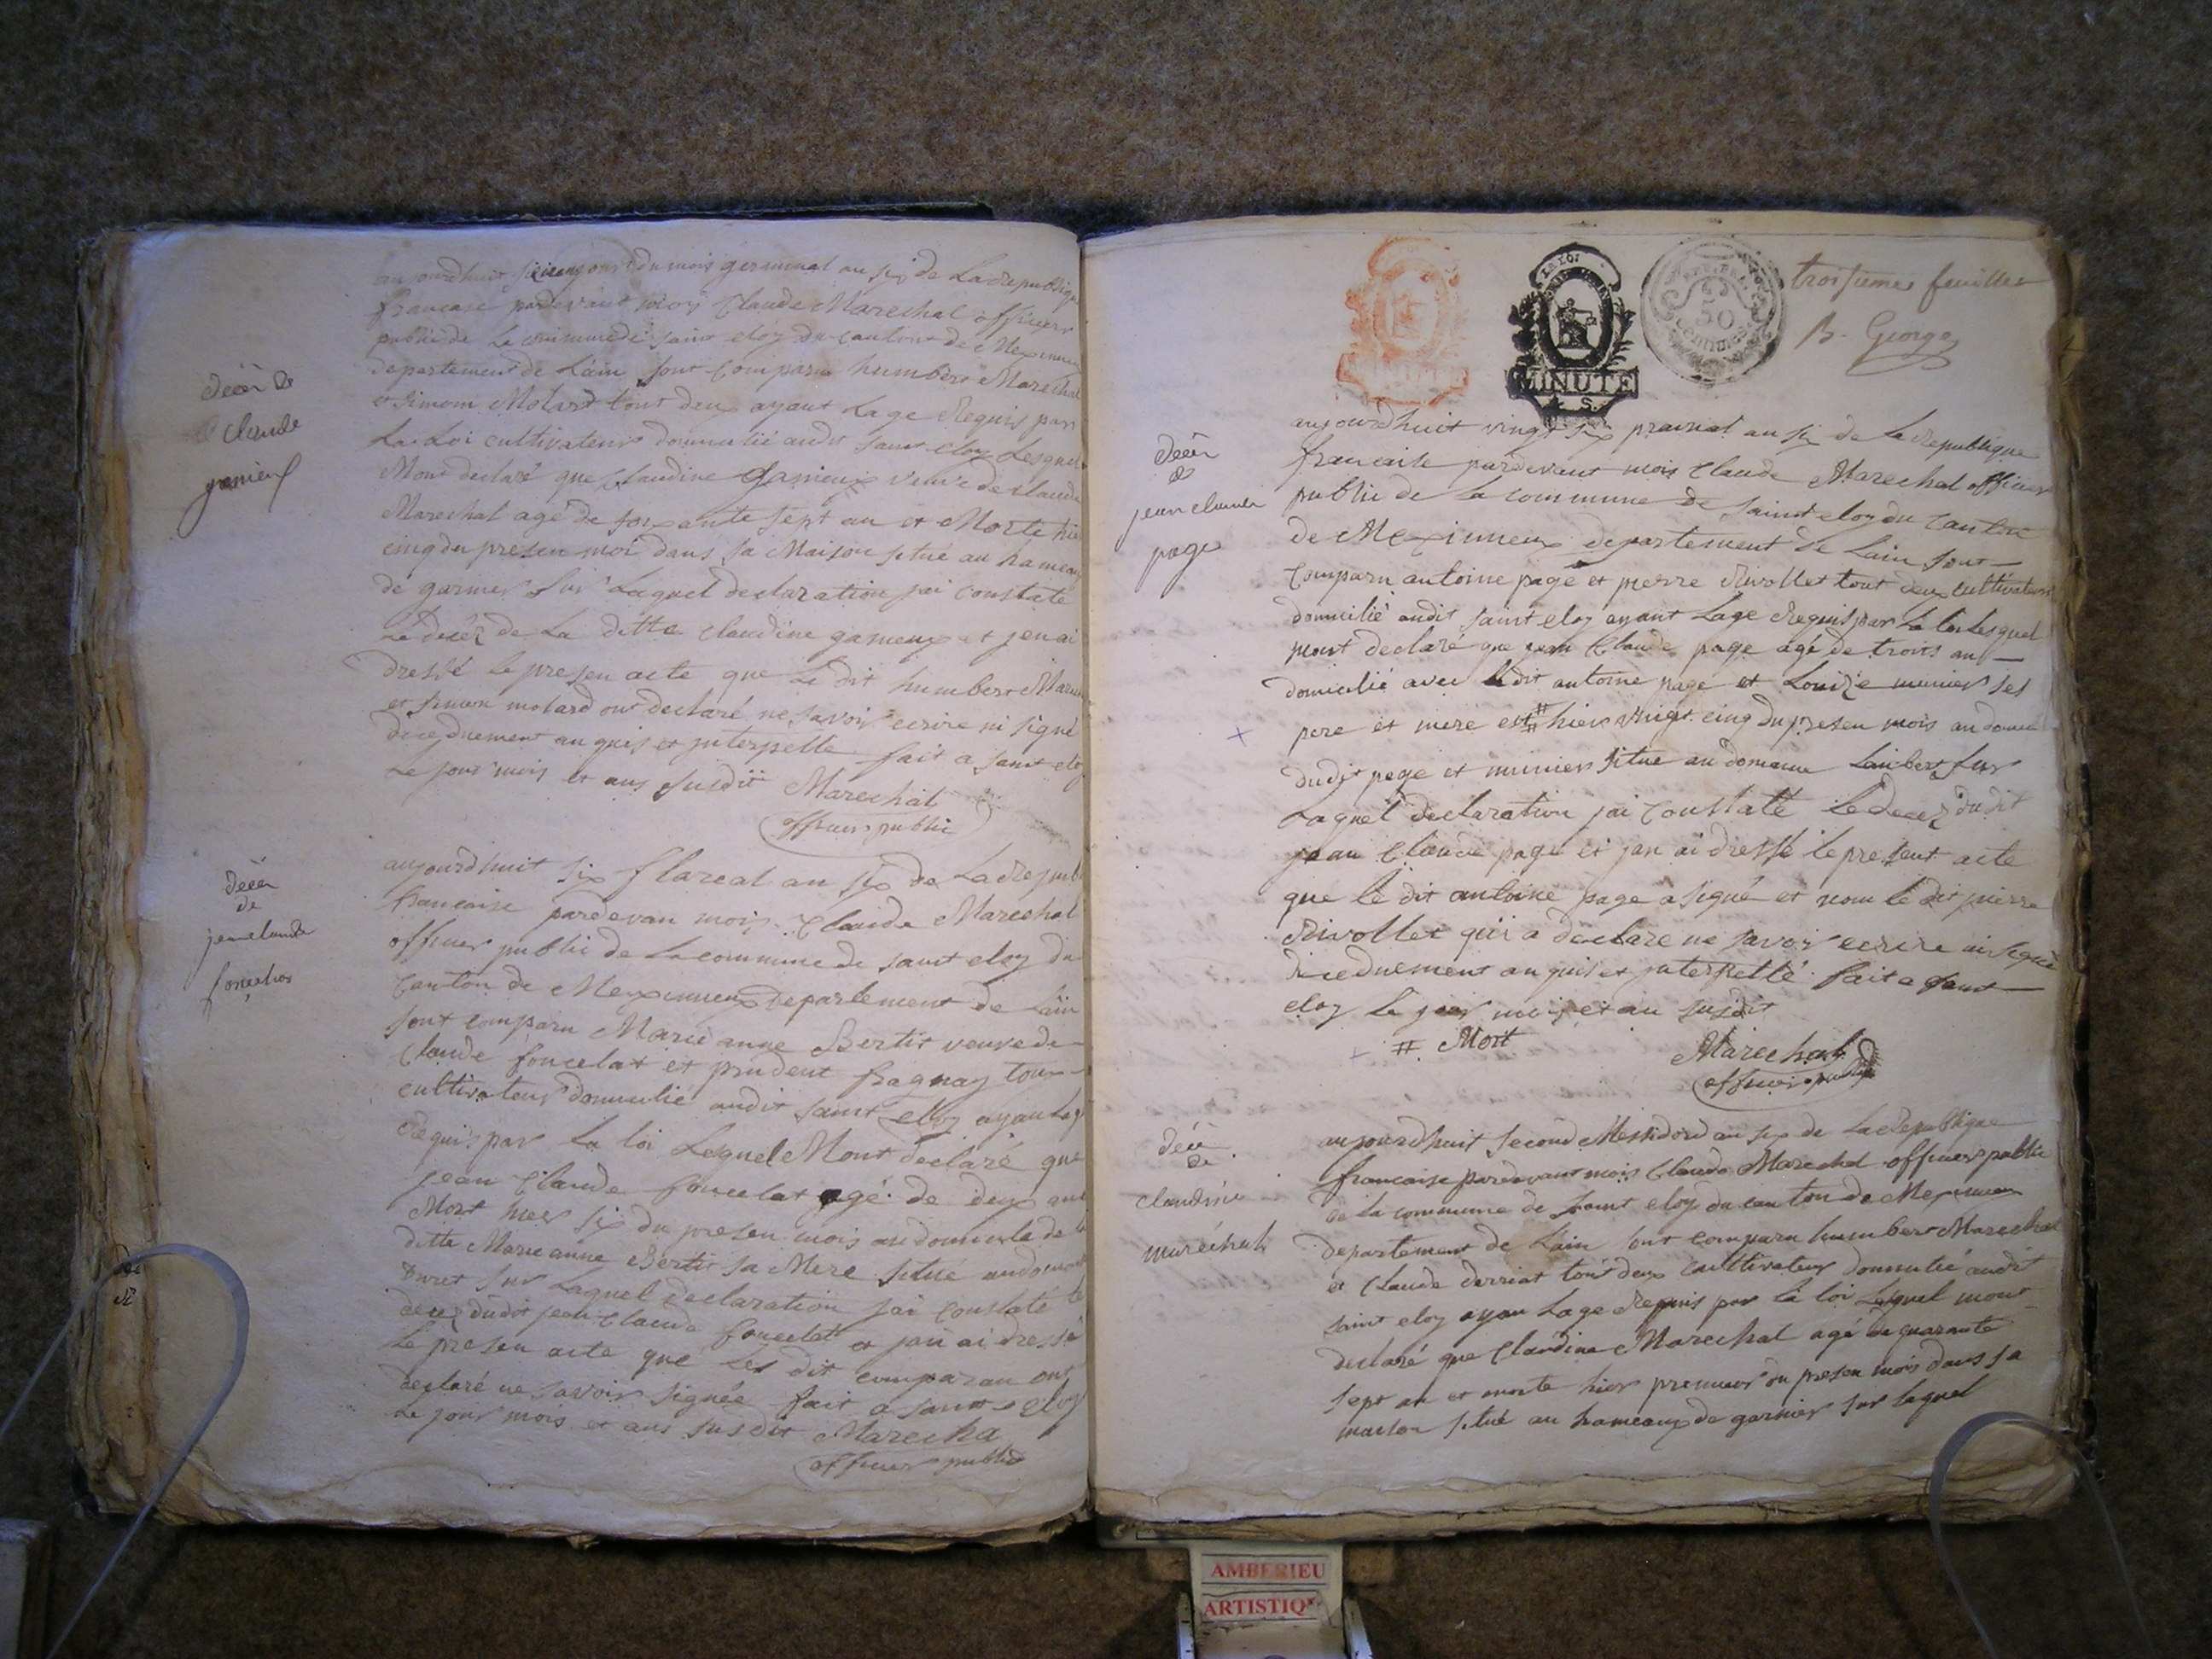 aujourdhuit du mois germinal an six de La Republique
francaise pardevant moi Claude Marechal officiers
public de La commune de saint eloy du Canton de Meximieux
departement de Lain sont comparu humbert Marechal
et simom Molard tout deux ayant Lage Requis par
La Loi cultivateur domicilié audit saint eloy Lesquel
Mont declaré que Claudine Ganieux veuve de Claude
Marechal agé de soixante sept an et Morte hier
cinq du presen moi dans sa Maison situé au hameau
de garnier sur Laquel declaration jai constaté
Le decez de La ditte Claudine ganieux et jen ai
dressé le presen acte que Le dit humbert Mare
et simon molard ont declaré ne savoir ecrire ni signé
de ce duement anquis et interpellé fait a saint eloy
Le jour mois et ans susdit Marechal
officier public
décè de
Claude
ganieux
aujourdhuit six flareal an six de La Repub
francaise pardevan mois Claude Marechal
officier public de La commune de saint eloy du
Canton de Meximieux Departement de Lain
sont comparu Marie anne Bertit veuve de
Claude foncelat et prudent fragnay tout
cultivateur domicilié audit saint eloy ayant Lag
Requis par La loi Lequel Mont declaré que
jean Claude foncelat agé de deux ans
Mort hier six du presen mois au domicile de la
ditte Marie anne Bertit sa Mere situé au domaine
sur Laquel declaration jai constaté le
decez dudit jean Claude foncelat et jan ai dressé
Le presen acte que Les dit comparan ont
declaré ne savoir signée fait a saint eloy
Le jour mois et ans susdit Marecha
officier public
décè
de
jean claude
foncelat
troisieme feuilles
B. George
LA LOI
MINUTE
50
CENTIMES
aujourdhuit vingt six prairial an six de la Republique
francaise pardevant mois Claude Marechal officier
public de La commune de saint eloy du Canton
de Meximieux departement de Lain sont
Comparu antoine page et pierre Rivollet tout deux Cultivateurs
domicilié audit saint eloy ayant Lage Requis par La loi Lesquel
mont declaré que jean Claude page agé de trois an
domicilié avec ledit antoine page et Louize munier ses
pere et mere est # hier vingt cinq du presen mois au domicile
dudit page et munier situe au domaine Laubert sur
Laquel declaration jai Constaté Le decez du dit
jean Claude page et jan ai dressé le present acte
que le dit antoine page a signé et nom le dit pierre
Rivollet qui a declare ne savoir ecrire ni signé
de ce duement anquis et interpellé fait a saint
eloy Le jour mois et an susdit
# Mort Marechal
officier public
décè
de
jean claude
page
aujourdhuit second Messidord an six de La Republique
francaise pardevant mois Claude Marechal officier public
de La commune de saint eloy du canton de Meximieux
departement de Lain sont comparu humbert Marechal
et Claude derriat tout deux Cultivateur domicilié audit
saint eloy ayan Lage Requis par la loi Lesquel mont
declaré que Claudine Marechal agé de quarante
sept an et morte hier premier du presen mois dans sa
maison situé au hameaux de garnier sur laquel
décè
de
claudine
maréchal
AMBERIEU
ARTISTIQ